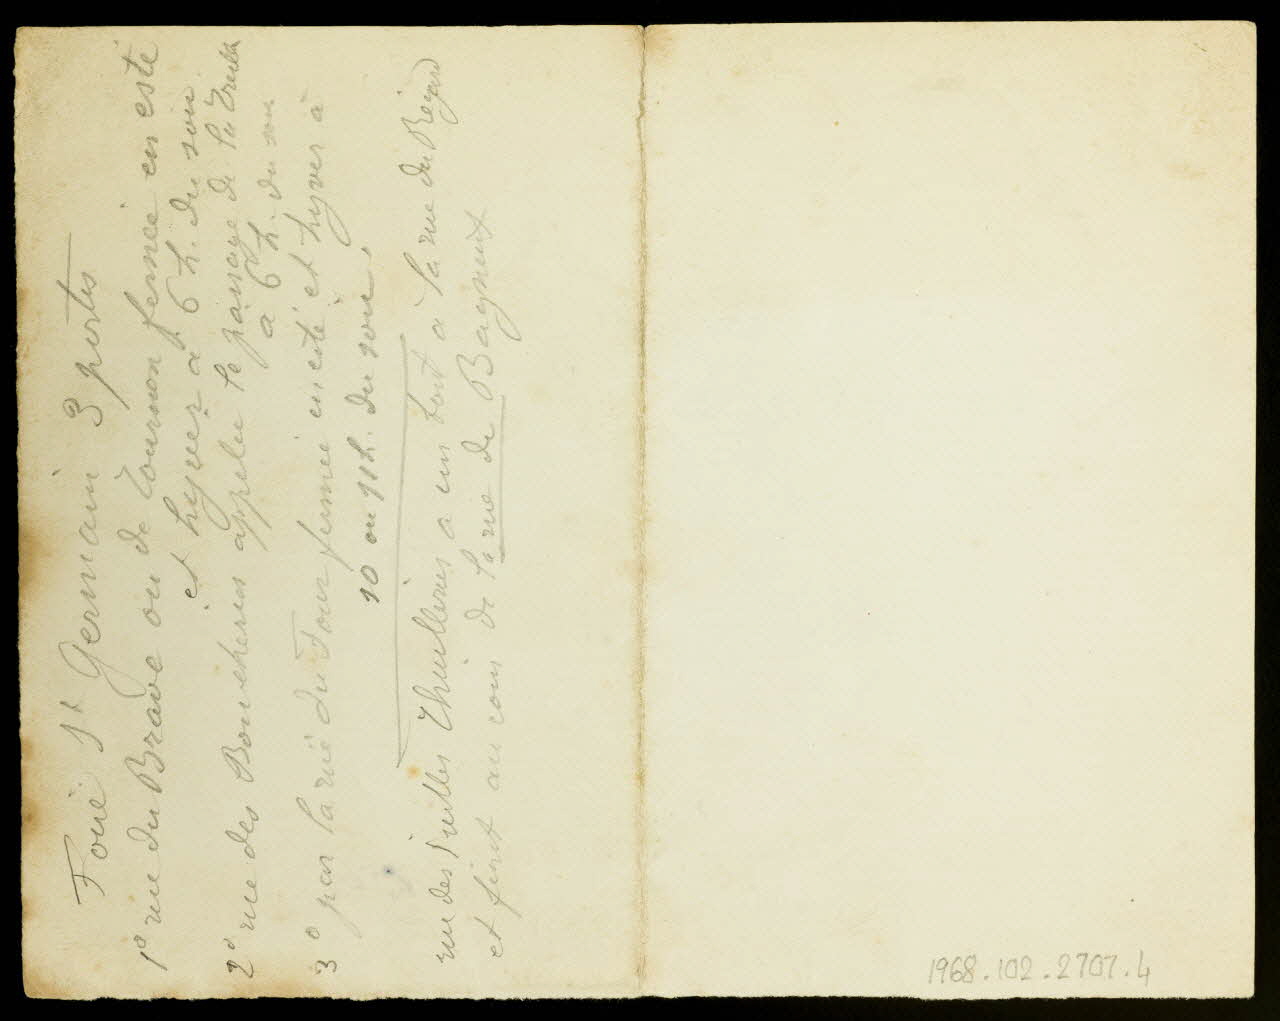 Foire St Germain 3 portes
1º rue du Brave ou de Tournon fermée en esté
et hyver à 6 h. du soir
2º rue des Boucheries appelée le passage de la Treille
à 6 h. du soir
3º par la rue du Four fermée en esté et hyver à
10 ou 11 h. du soir.
rue des Vielles Thuilleries a un bout à la rue du Regard
et finit au coin de la rue de Bagneux
1968.102.2707.4